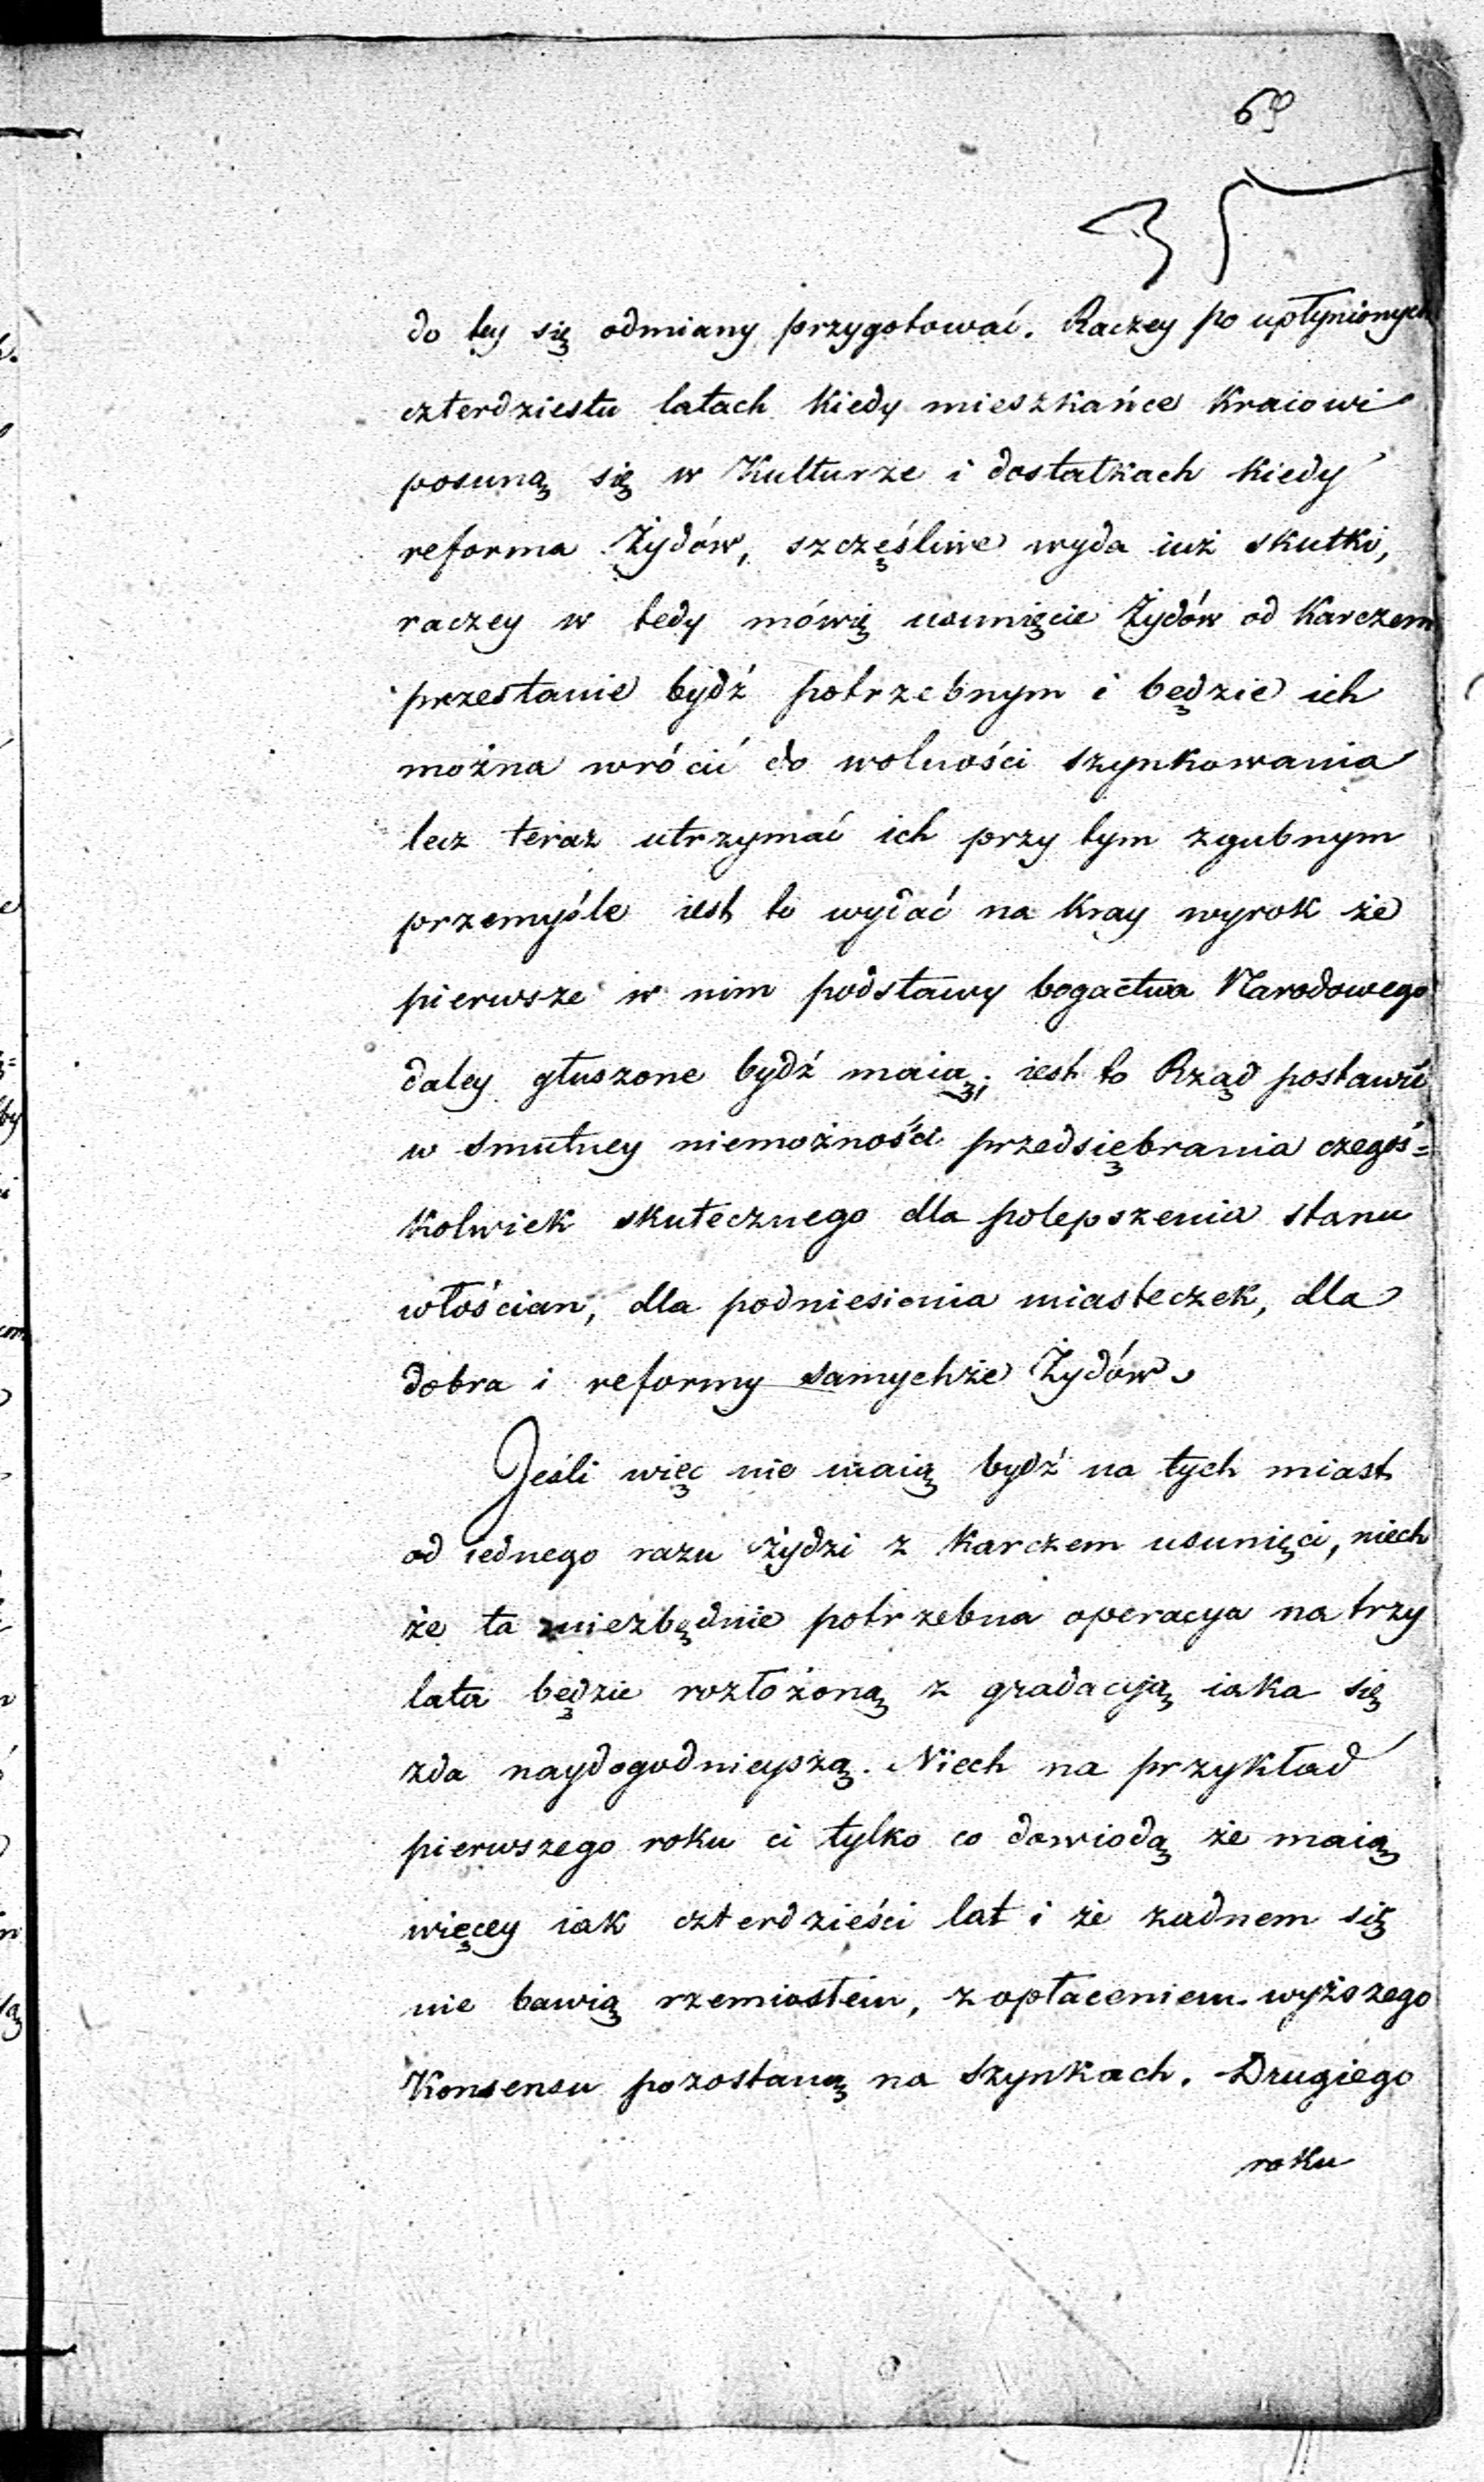 69
35
do tey się odmiany przygotować. Raczey po upłynionych
czterdziestu latach kiedy mieszkańce kraiowi
posuną się w Kulturze i dostatkach kiedy
reforma Żydów, szczęśliwe wyda iuż skutki,
raczey w tedy mówię usunięcie Żydów od Karczem
przestanie bydź potrzebnym i będzie ich
można wrócić do wolności szynkowania
lecz teraz utrzymać ich przy tym zgubnym
przemyśle iest to wydać na Kray wyrok że
pierwsze w nim podstawy bogactwa Narodowego
daley głuszone bydź maią; iest to Rząd postawić
w smutney niemożności przedsiębrania czegoś=
kolwiek skutecznego dla polepszenia stanu
włościan, dla podniesienia miasteczek, dla
dobra i reformy samychże Żydów.
Jeśli więc nie maią bydź na tych miast
od iednego razu żydzi z Karczem usunięci, niech
że ta niezbędnie potrzebna operacya na trzy
lata będzie rozłożoną z gradacyią iaka się
zda naydogodnieyszą. Niech na przykład
pierwszego roku ci tylko co dowiodą że maią
więcey iak czterdzieści lat i że żadnem się
nie bawią rzemiosłem, z opłaceniem wyższego
Konsensu pozostaną na szynkach. Drugiego
roku